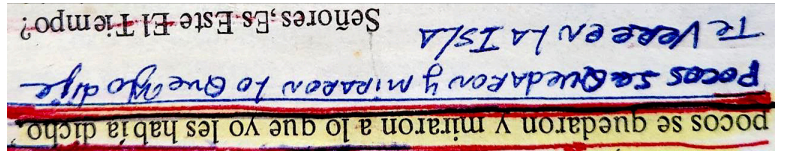 pocos se quedaron y miraron a lo que yo les había dicho,
POCOS SE QUEDARON y MIRARON LO QUE yo dije
TE VERE EN LA ISLA
Señores,Es Este El Tiempo?